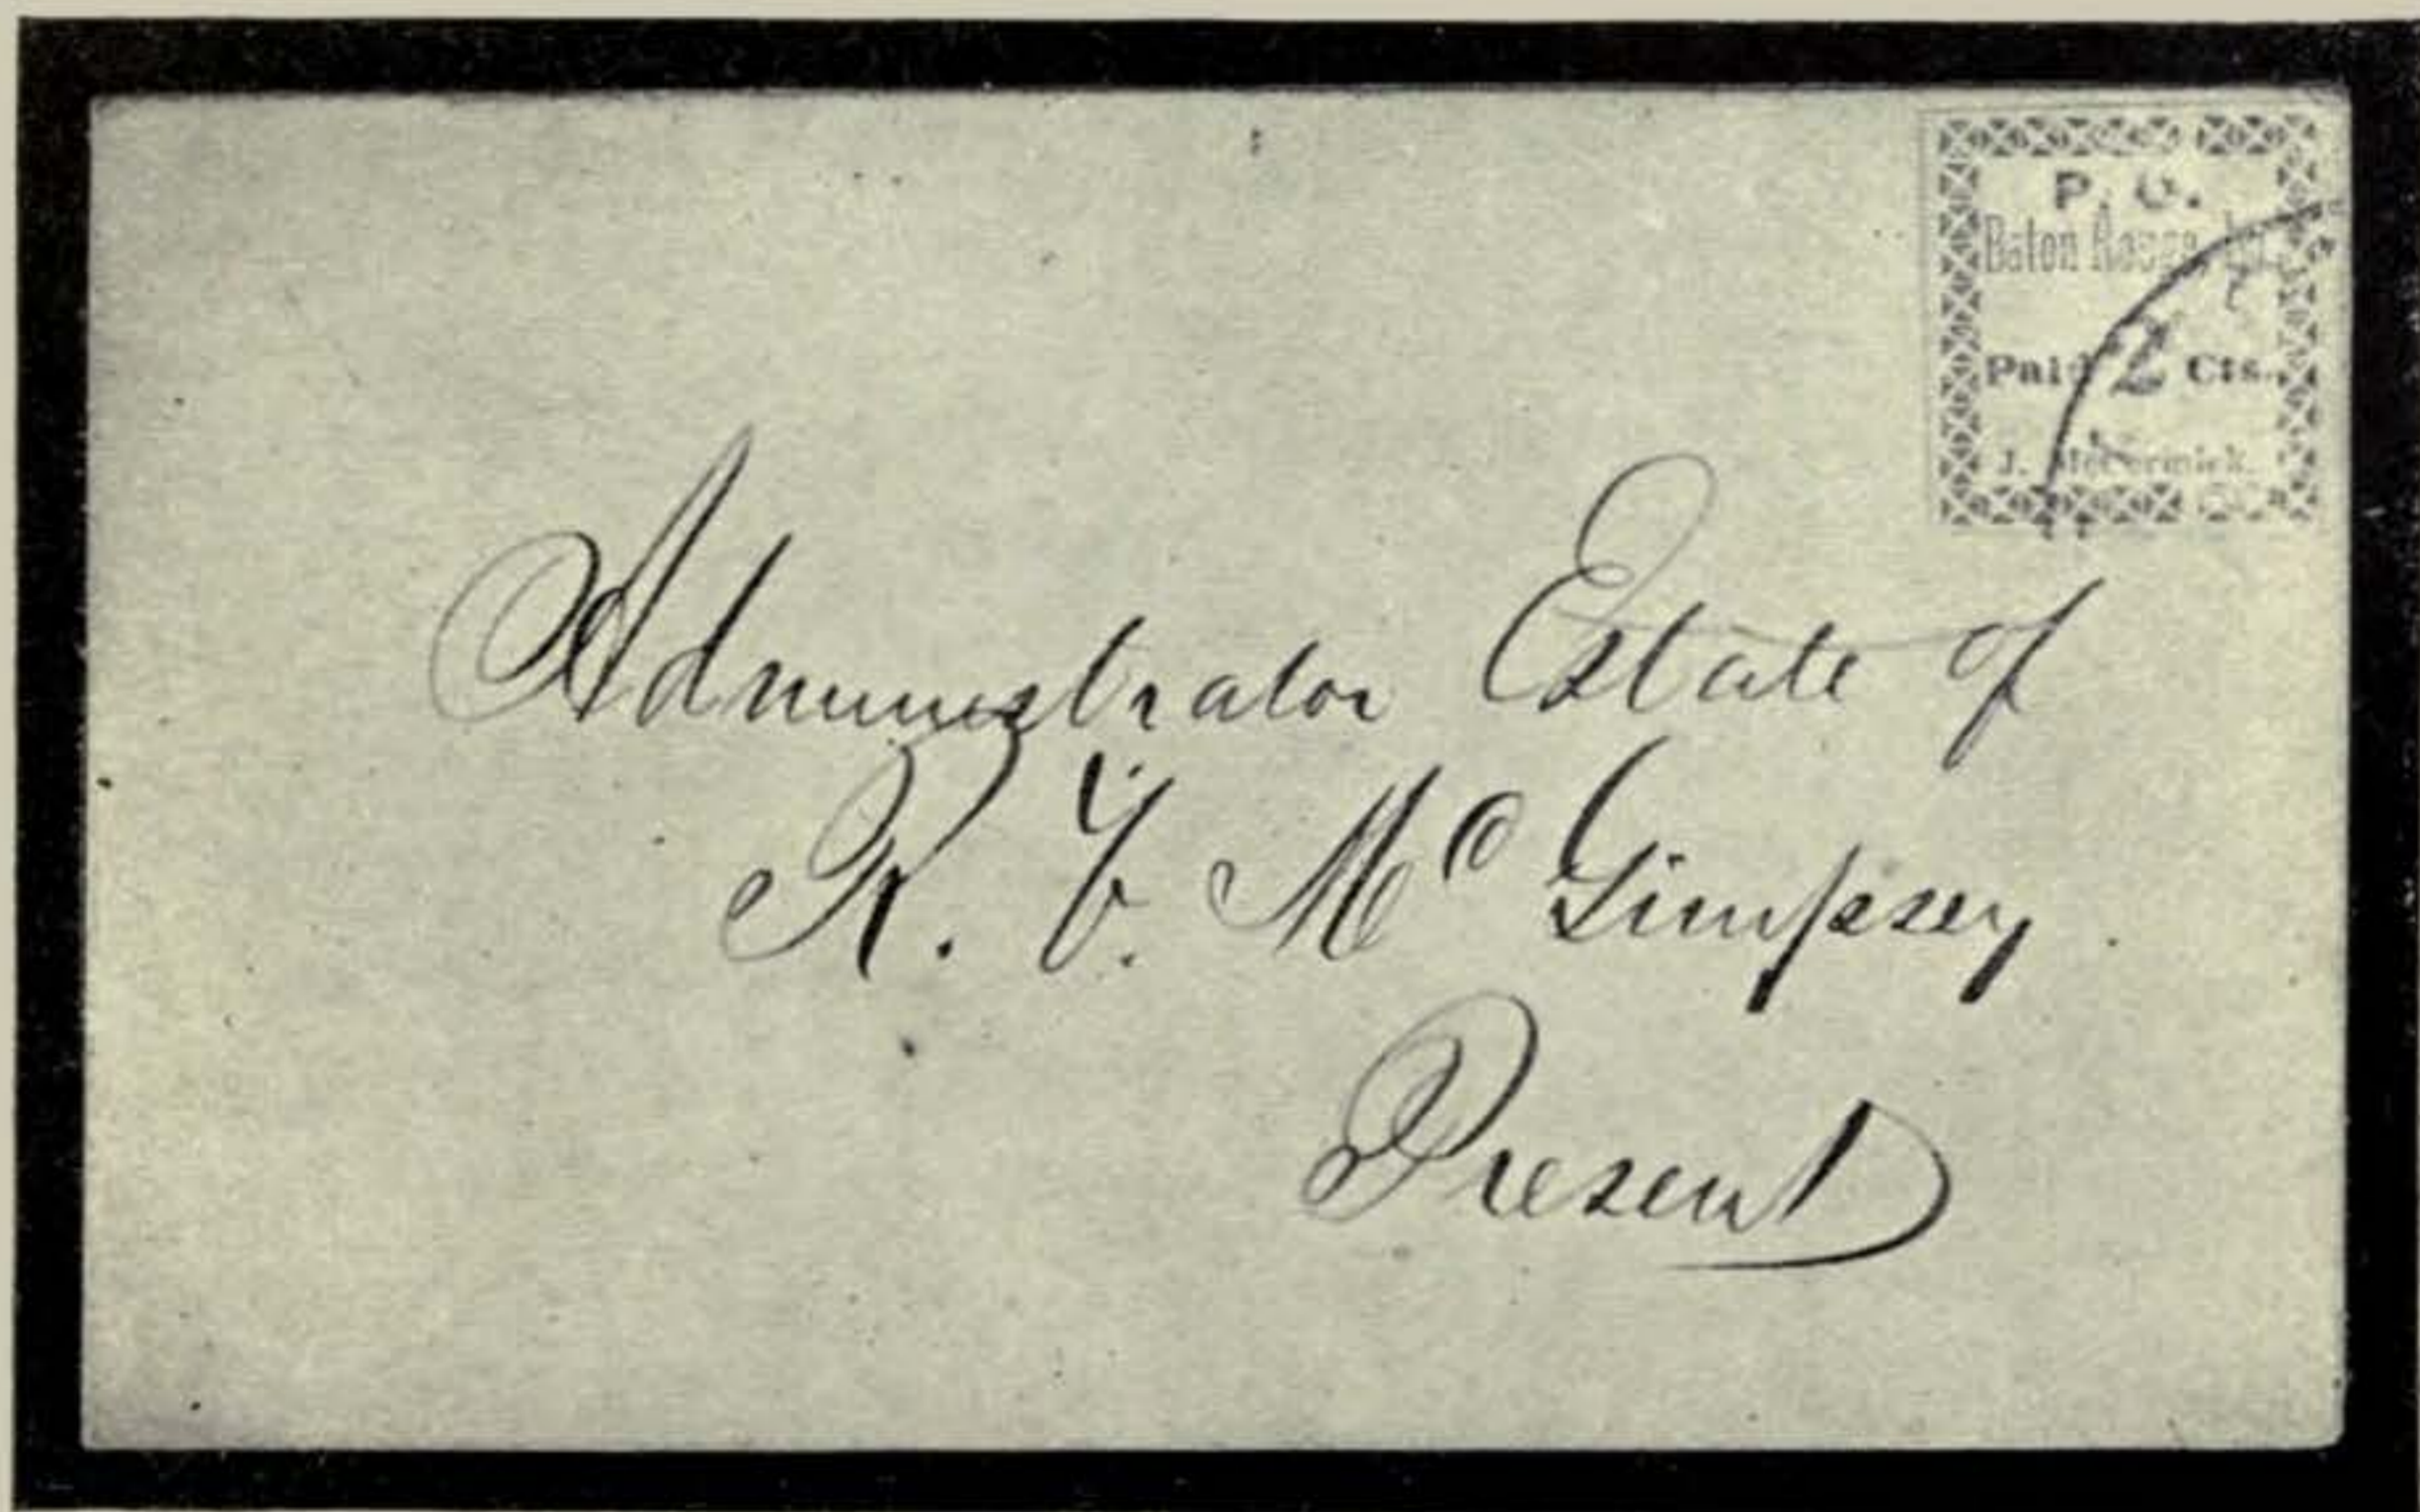 P. O.
Baton Rouge, La.
Paid 2 Cts.
J. McCormick.
Administrator Estate of
R. Y. McGimpsey
Present